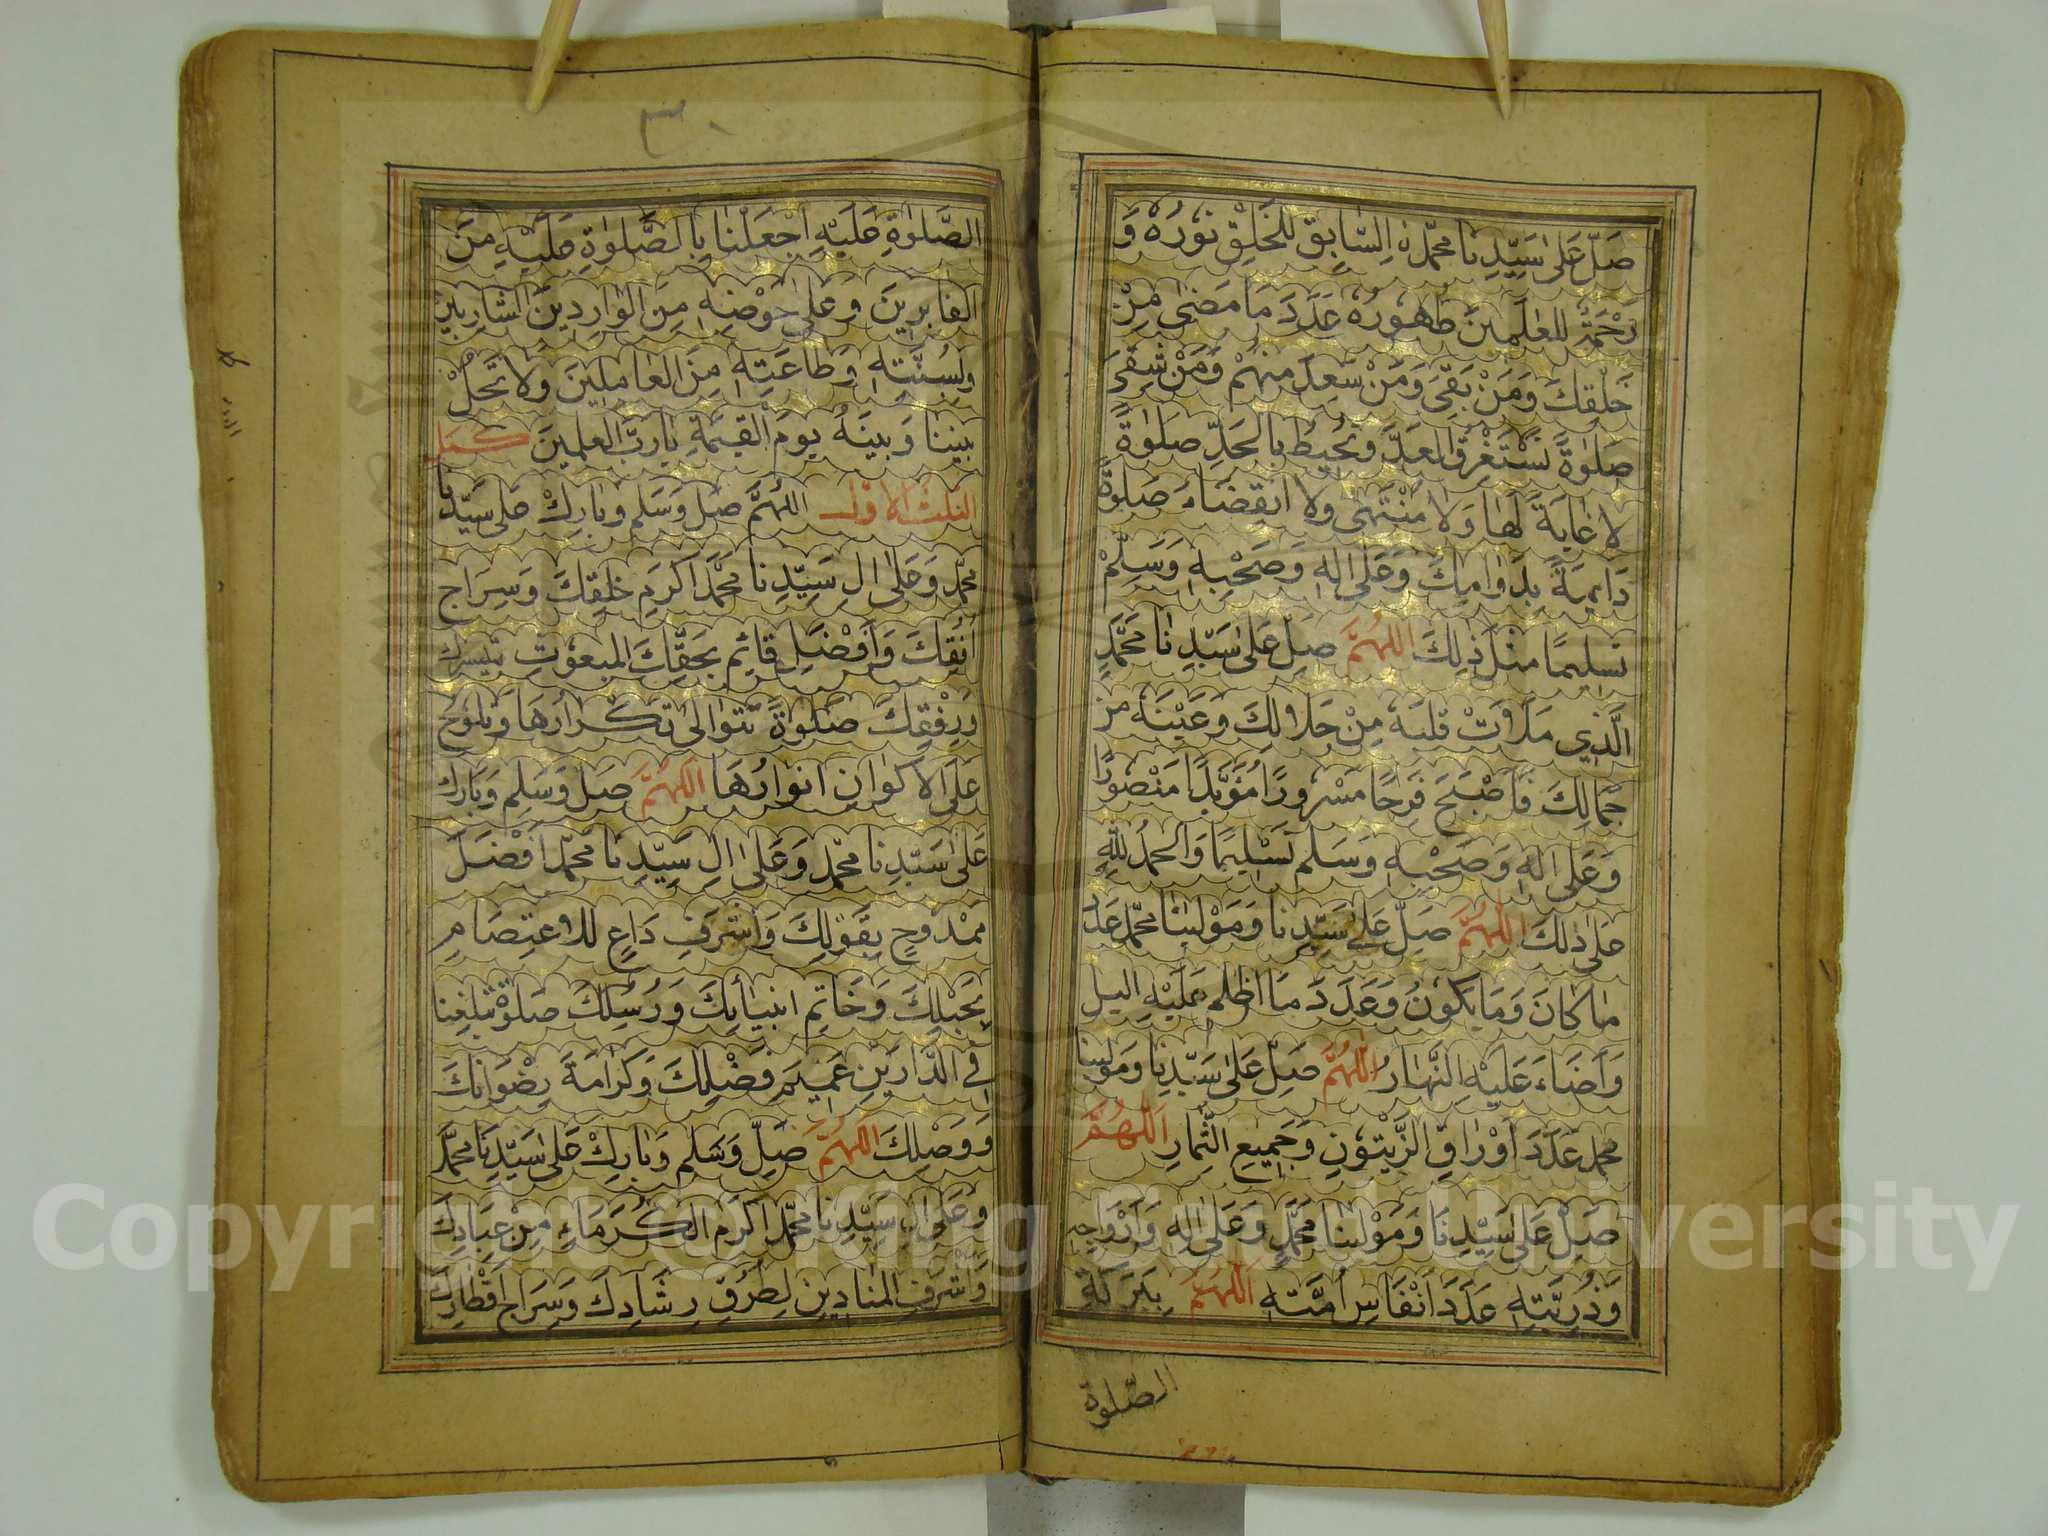 صَلِّ عَلٰى سَيِّدِنَا مُحَمَّدِ نِ السَّابِقِ لِلْخَلْقِ نُورُهُ وَ
رَحْمَةٌ لِلْعٰلَمِينَ ظُهُورُهُ عَدَدَ مَا مَضٰى مِنْ
خَلْقِكَ وَمَنْ بَقِيَ وَمَنْ سَعِدَ مِنْهُمْ وَمَنْ شَقِيَ
صَلٰوةً تَسْتَغْرِقُ الْعَدَّ وَتُحِيطُ بِالْحَدِّ صَلٰوةً
لَا غَايَةَ لَهَا وَلَا مُنْتَهٰى وَلَا انْقِضَاءَ صَلٰوةً
دَايِمَةً بِدَوَامِكَ وَعَلٰى اٰلِهِ وَصَحْبِهِ وَسَلِّمْ
تَسْلِيمًا مِثْلَ ذٰلِكَ اَللّٰهُمَّ صَلِّ عَلٰى سَيِّدِنَا مُحَمَّدٍ
الَّذِي مَلَأْتَ قَلْبَهُ مِنْ جَلَالِكَ وَعَيْنَهُ مِنْ
جَمَالِكَ فَأَصْبَحَ فَرِحًا مَسْرُورًا مُؤَيَّدًا مَنْصُورًا
وَعَلٰى اٰلِهِ وَصَحْبِهِ وَسَلِّمْ تَسْلِيمًا وَالْحَمْدُ لِلّٰهِ
عَلٰى ذٰلِكَ اَللّٰهُمَّ صَلِّ عَلٰى سَيِّدِنَا وَمَوْلٰينَا مُحَمَّدٍ عَدَدَ
مَا كَانَ وَمَا يَكُونُ وَعَدَدَ مَا اَظْلَمَ عَلَيْهِ اليل
وَاَضَاءَ عَلَيْهِ النَّهَارُ اَللّٰهُمَّ صَلِّ عَلٰى سَيِّدِنَا وَمَوْلٰينَا
مُحَمَّدٍ عَدَدَ اَوْرَاقِ الزَّيْتُونِ وَجَمِيعِ الثِّمَارِ اَللّٰهُمَّ
صَلِّ عَلٰى سَيِّدِنَا وَمَوْلٰينَا مُحَمَّدٍ وَعَلٰى اٰلِهِ وَاَزْوَاجِهِ
وَذُرِّيَّتِهِ عَدَدَ اَنْفَاسِ اُمَّتِهِ اَللّٰهُمَّ بِبَرَكَةِ
الصَّلٰوة
٣٠
الصَّلٰوةِ عَلَيْهِ اجْعَلْنَا بِالصَّلٰوةِ عَلَيْهِ مِنَ
الفَايِزِينَ وَعَلٰى حَوْضِهِ مِنَ الْوَارِدِينَ الشَّارِبِينَ
وَبِسُنَّتِهِ وَطَاعَتِهِ مِنَ العَامِلِينَ وَلَا تَحُلْ
بَيْنَنَا وَبَيْنَهُ يَوْمَ الْقِيٰمَةِ يَا رَبَّ الْعٰلَمِينَ كمل
الثلث الاول اللّٰهُمَّ صَلِّ وَسَلِّم وَبَارِكْ عَلٰى سَيِّدِنَا
مُحَمَّدٍ وَعَلٰى اٰلِ سَيِّدِنَا مُحَمَّدٍ اَكْرَمِ خَلْقِكَ وَسِرَاجِ
اُفُقِكَ وَاَفْضَلِ قَائِمٍ بِحَقِّكَ الْمَبْعُوثِ بِتَيْسِيرِكَ
وَرِفْقِكَ صَلٰوةً تَتَوَالٰى تَكْرَارُهَا وَتَلُوحُ
عَلَى الْاَكْوَانِ اَنْوَارُهَا اَللّٰهُمَّ صَلِّ وَسَلِّمْ وَبَارِكْ
عَلٰى سَيِّدِنَا مُحَمَّدٍ وَعَلٰى اٰلِ سَيِّدِنَا مُحَمَّدٍ اَفْضَلِ
مَمْدُوحٍ بِقَوْلِكَ وَاَشْرَفِ دَاعٍ لِلْاِعْتِصَامِ
بِحَبْلِكَ وَخَاتِمِ اَنْبِيَائِكَ وَرُسُلِكَ صَلٰوةً تُبَلِّغُنَا
فِي الدَّارَيْنِ عَمِيمَ فَضْلِكَ وَكَرَامَةَ رِضْوَانِكَ
وَوَصْلِكَ اَللّٰهُمَّ صَلِّ وَسَلِّم وَبَارِكْ عَلٰى سَيِّدِنَا مُحَمَّدٍ
وَعَلٰى اٰلِ سَيِّدِنَا مُحَمَّدٍ اَكْرَمِ الْكُرَمَاءِ مِنْ عِبَادِكَ
وَاَشْرَفِ الْمُنَادِينَ لِطُرُقِ رِشَادِكَ وَسِرَاجِ اَقْطَارِكَ
Copyright © King Saud University